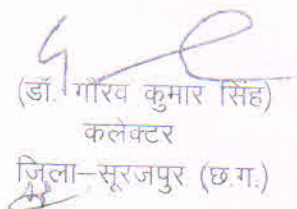 (डॉ. गौरव कुमार सिंह)
कलेक्टर
जिला–सूरजपुर (छ.ग.)